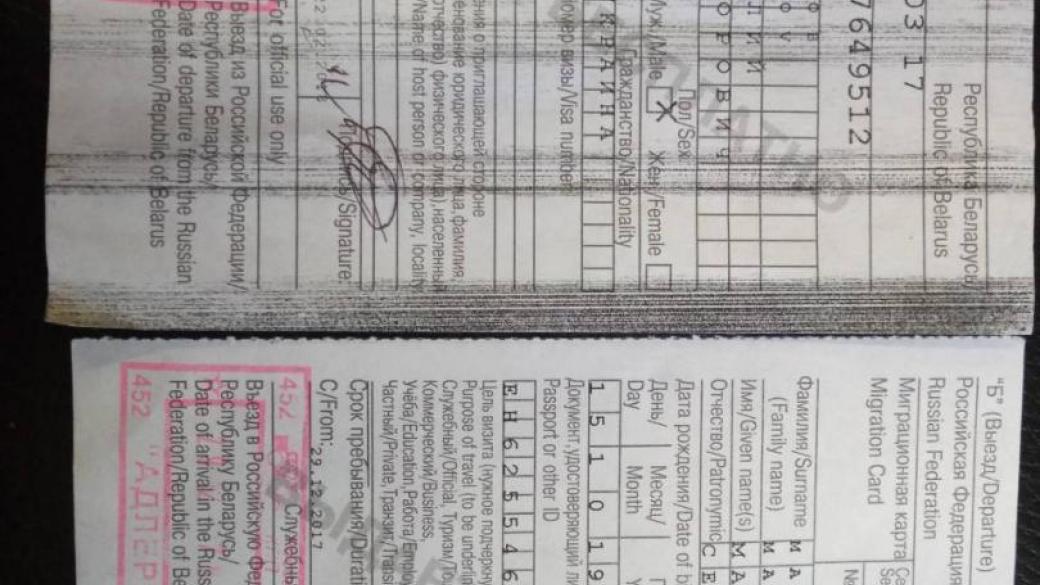 Республика Беларусь/
Republic of Belarus
03 17
7649512
Ф В
Ф У
Л И Й
О Р О В И Ч
Пол/Sex
Муж./Male X Жен/Female
Гражданство/Nationality
К Р А И Н А
Номер визы/Visa number:
приглашающей стороне
юридического лица, фамилия,
физического лица), населенный
/Name of host person or company, locality
Подпись/Signature:
For official use only
Выезд из Российской Федерации/
Республики Беларусь/
Date of departure from the Russian
Federation/Republic of Belarus
БЕСПЛАТНО
"Б" (Выезд/Departure)
Российская Федерация
Russian Federation
Миграционная карта
Migration Card
Фамилия/Surname М А
(Family name) М А
Имя/Given name(s) М А
Отчество/Patronymic С Е
Дата рождения/Date of b
День/ Месяц/
Day Month
1 5 1 0 1 9
Документ, удостоверяющий ли
Passport or other ID
Е Н 6 2 5 5 4 6
Цель визита (нужное подчеркну
Purpose of travel (to be underlin
Служебный/Official, Туризм/То
Коммерческий/Business,
Учёба/Education, Работа/Employ
Частный/Private, Транзит/Transi
Срок пребывания/Durati
С/From: 29.12.2017
Служебны
Въезд в Российскую Фед
Республику Беларусь/
Date of arrival in the Russ
Federation/Republic of Be
452
452 "АДЛЕР